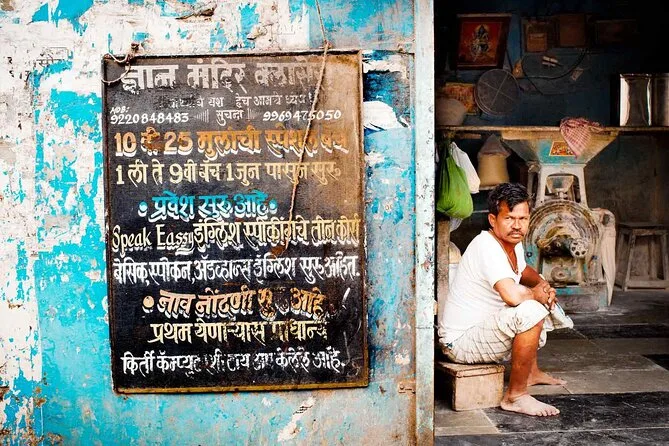 ज्ञान मंदिर क्लासेस
यश हेच आमचे ध्येय
MOB: सुचना
9220848483 9969475050
10 वी 25 मुलांची स्पेशल बॅच
1 ली ते 9 वी बॅच 1 जुन पासुन सुरु
प्रवेश सुरु आहे
Speak Eassy इंग्लिश स्पीकींगचे तीन कोर्स
बेसिक, स्पीकन, अ‍ॅडव्हान्स इंग्लिश सुरु आहेत.
नाव नोंदणी सुरु आहे
प्रथम येणाऱ्यास प्राधान्य
किर्ति कॅम्प्युटरशी टाय अप केलेले आहे.